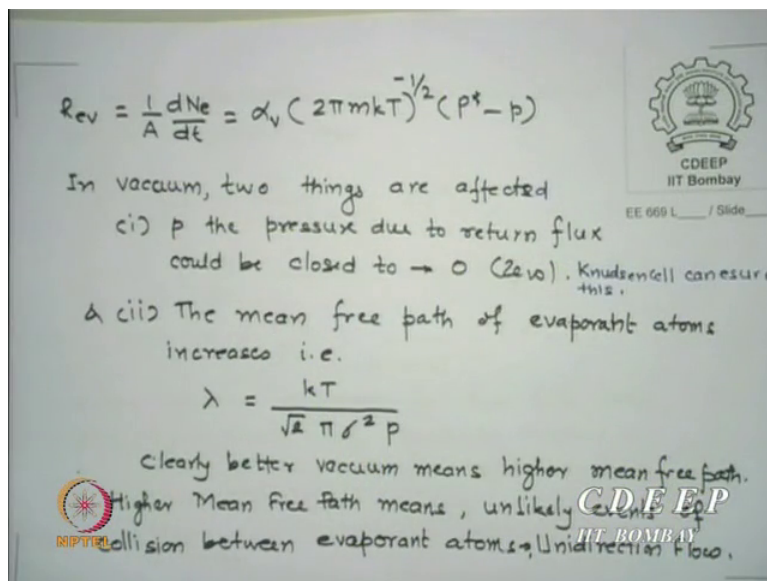 Rev = 1/A dNe/dt = αv (2πmkT)^-1/2 (p* - p)
CDEEP
IIT Bombay
In vacuum, two things are affected
EE 669 L____ / Slide____
(i) p the pressure due to return flux
could be closed to → 0 (Zero). Knudsen cell can esure
this.
& (ii) The mean free path of evaporant atoms
increases i.e.
λ = kT / √2 π σ² p
Clearly better vacuum means higher mean free path.
Higher Mean Free Path means, unlikely events of
collision between evaporant atoms → Unidirection Flow.
NPTEL
CDEEP
IIT BOMBAY